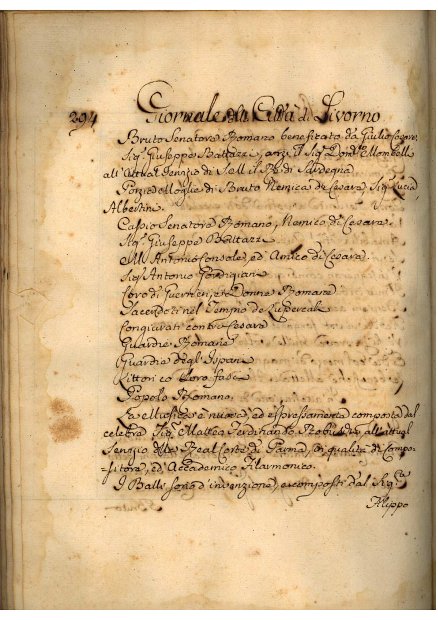 394 Giornale della Città di Livorno
Bruto Senatore Romano beneficato da Giulio Cesare
Sig.r Giuseppe Baltazzi, anzi il Sig.r Dom.co Mombelli
all'attual Servizio di S. M. il Rè di Sardegna
Porzia Moglie di Bruto Nemica di Cesare Sig.ra Lucia
Albertini.
Cassio Senatore Romano, Nemico di Cesare.
Sig.r Giuseppe Baltazzi
M. Antonio Console, ed Amico di Cesare.
Sig.r Antonio Gordigiani
Coro di Guerrieri, e Donne Romane
Sacerdoti nel Tempio de Lupercale
Congiurati contro Cesare
Guardie Romane
Guardie degl'Ispani
Littori co Loro fasci
Popolo Romano.
La Musica è nuova, ed espressamente composta dal
celebre Sig.r Mattea Ferdinando Robuschi, all'attual
Servizio della Real Corte di Parma, in qualità di Compo-
sitore, ed Accademico Filarmonico.
I Balli sono d'invenzione, e composti dal Sig.r
Filippo